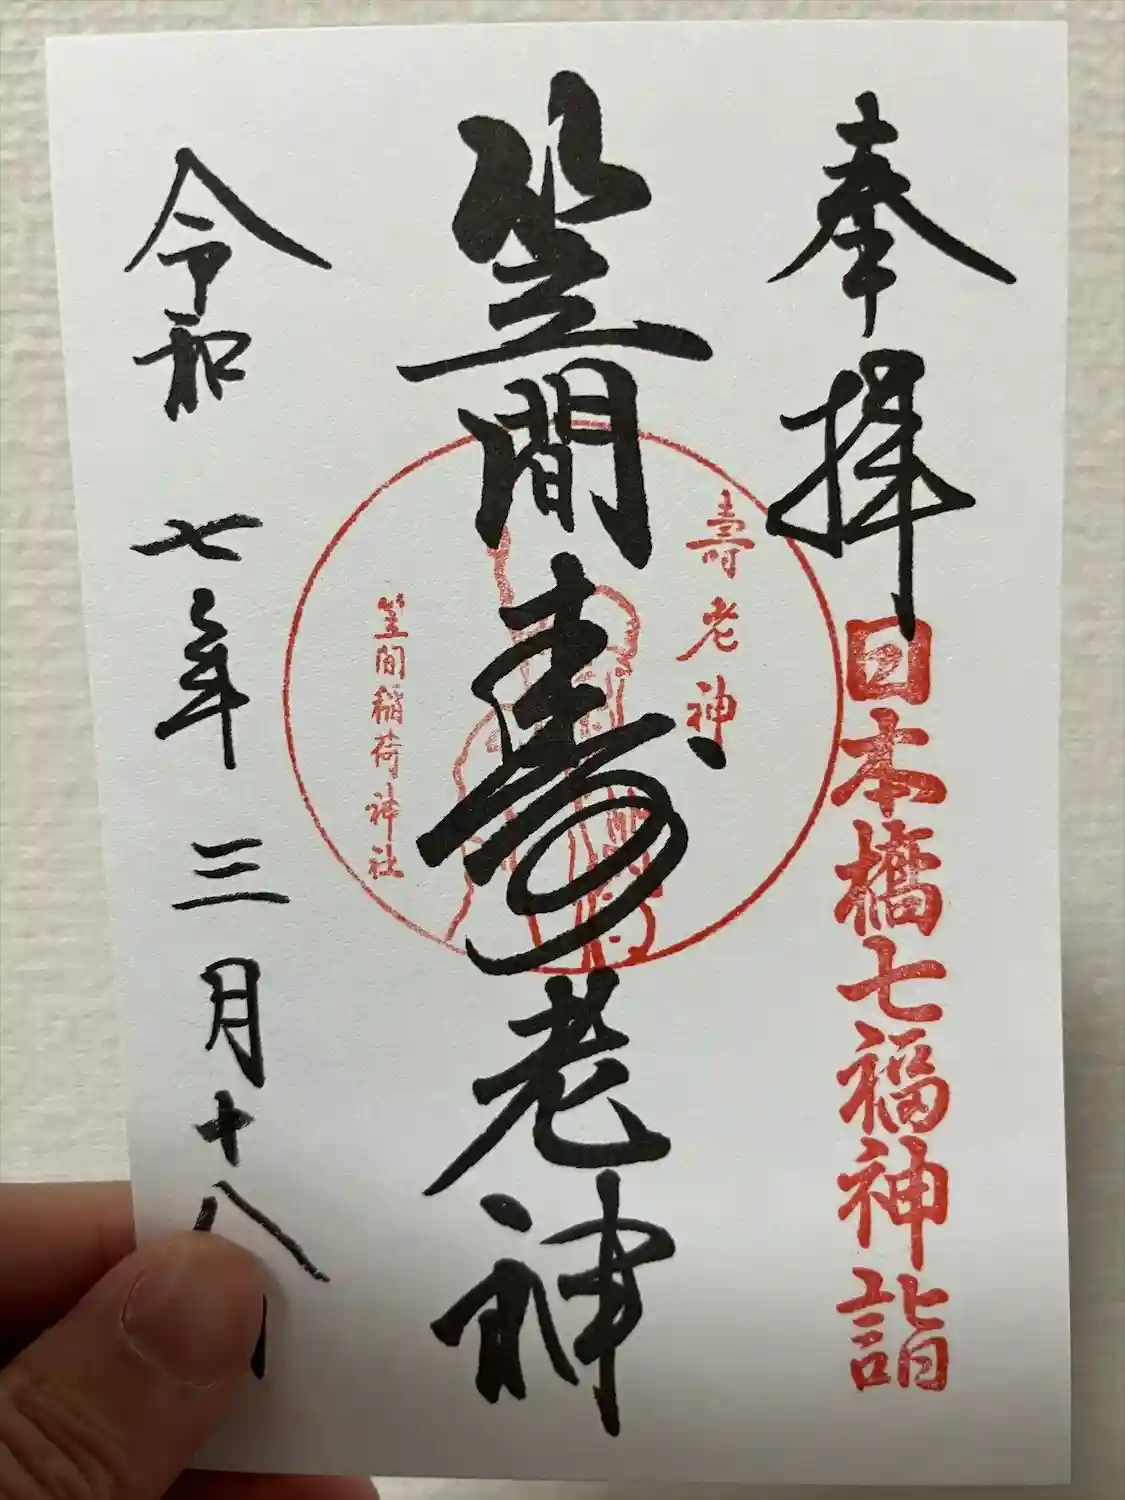 奉拝
日本橋七福神詣
笠間寿老神
壽老神
笠間稲荷神社
令和七年三月十八